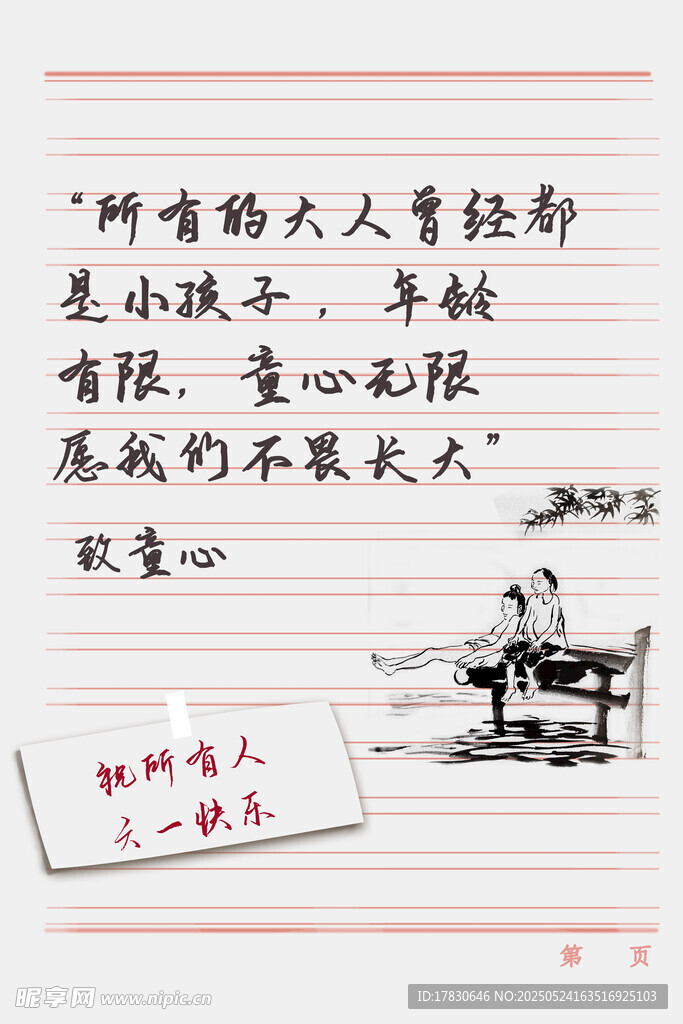 “所有的大人曾经都
是小孩子，年龄
有限，童心无限
愿我们不畏长大”
致童心
祝所有人
六一快乐
第 页
昵享网 www.nipic.cn
ID:17830646 NO:20250524163516925103